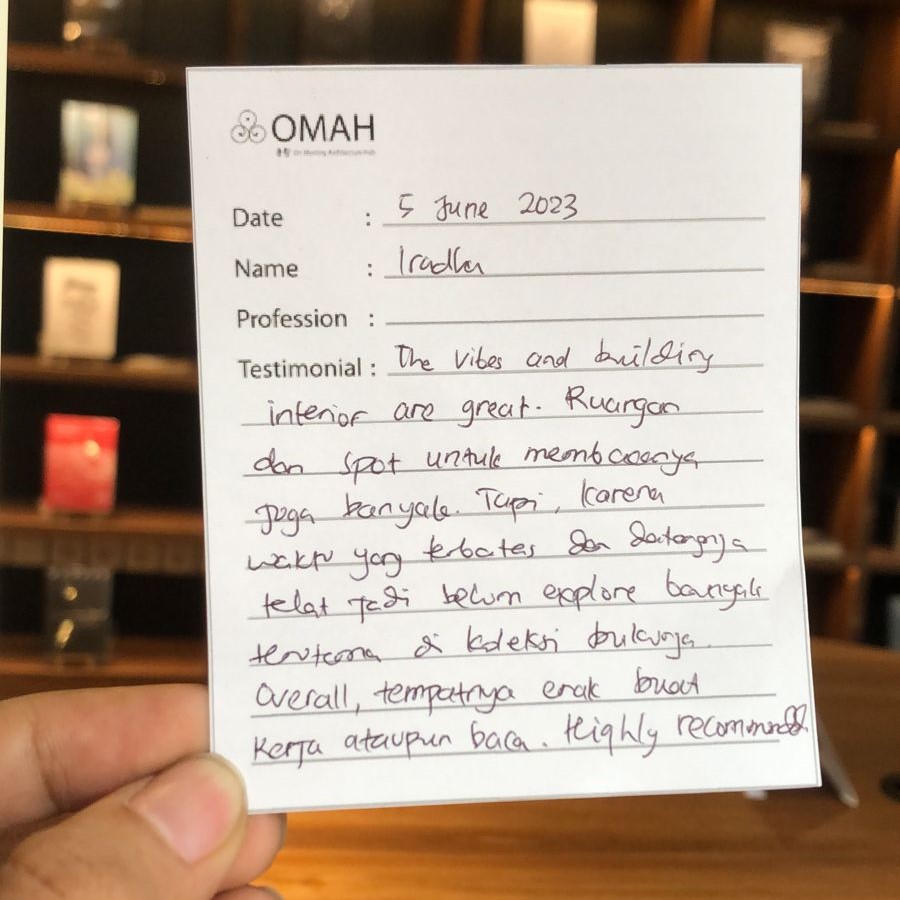 OMAH
Date : 5 June 2023
Name : Iradha
Profession :
Testimonial : The vibes and building
interior are great. Ruangan
dan spot untuk membacanya
juga banyak. Tapi, karena
waktu yang terbatas dan datangnya
telat jadi belum explore banyak
terutama di koleksi bukunya.
Overall, tempatnya enak buat
kerja ataupun baca. Highly recommended.